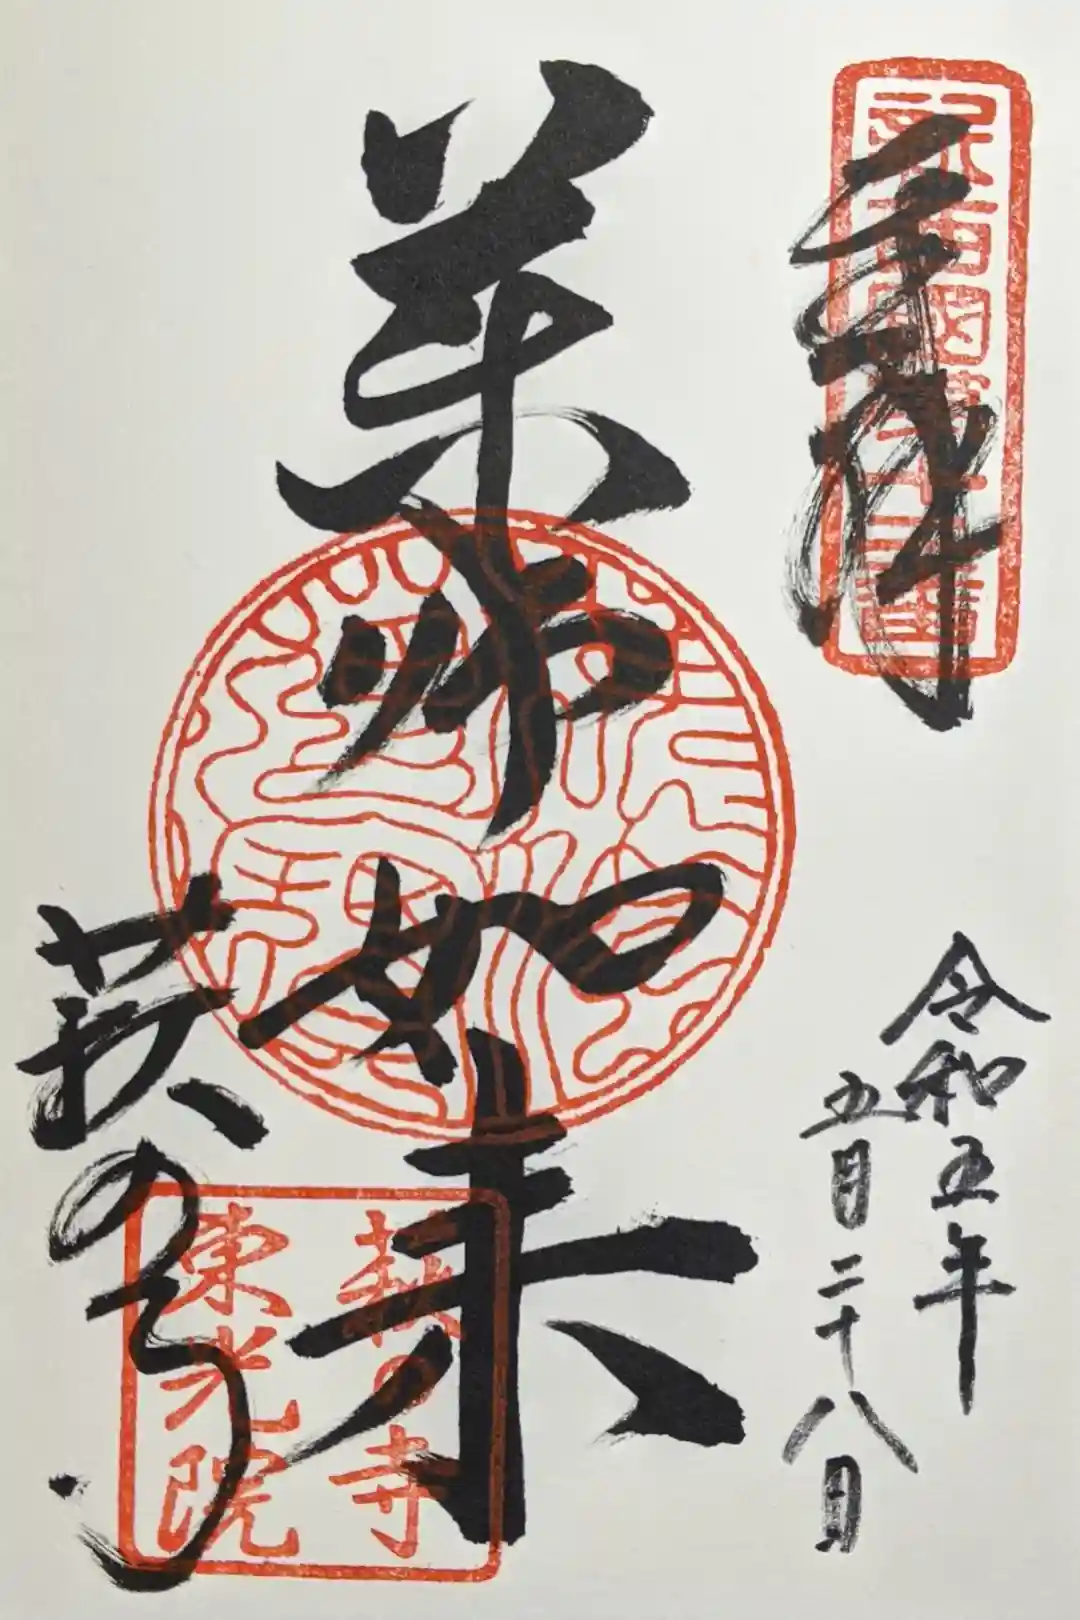 奉拝
令和五年
五月二十八日
薬師如来
萩の寺
萩の寺
東光院